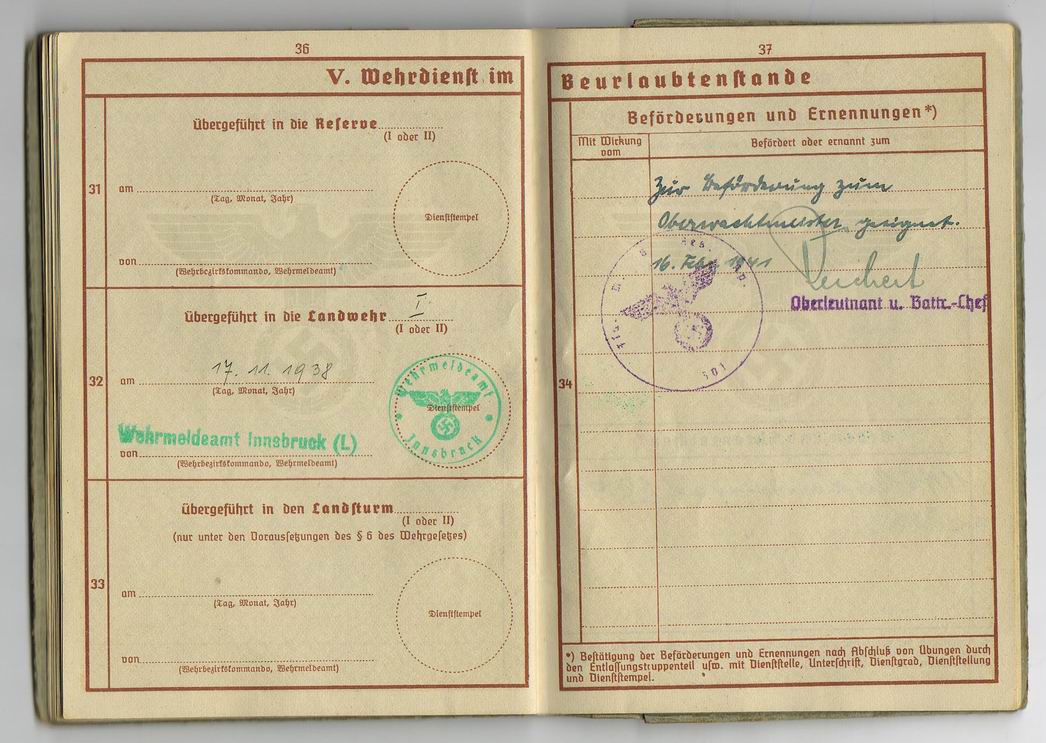 36
V. Wehrdienst im
Übergeführt in die Reserve
(I oder II)
31
am
(Tag, Monat, Jahr)
Dienststempel
von
(Wehrbezirkskommando, Wehrmeldeamt)
Übergeführt in die Landwehr I
(I oder II)
32
am 17. 11. 1938
(Tag, Monat, Jahr)
Wehrmeldeamt
Dienststempel
Innsbruck
Wehrmeldeamt Innsbruck (L)
von
(Wehrbezirkskommando, Wehrmeldeamt)
Übergeführt in den Landsturm
(I oder II)
(nur unter den Voraussetzungen des § 6 des Wehrgesetzes)
33
am
(Tag, Monat, Jahr)
Dienststempel
von
(Wehrbezirkskommando, Wehrmeldeamt)
37
Beurlaubtenstande
Beförderungen und Ernennungen*)
Mit Wirkung vom
Befördert oder ernannt zum
Zur Beförderung zum
Oberwachtmeister geeignet.
16. 1941
Reichert
Oberleutnant u. Battr.-Chef
34
*) Bestätigung der Beförderungen und Ernennungen nach Abschluß von Übungen durch
den Entlassungstruppenteil usw. mit Dienststelle, Unterschrift, Dienstgrad, Dienststellung
und Dienststempel.